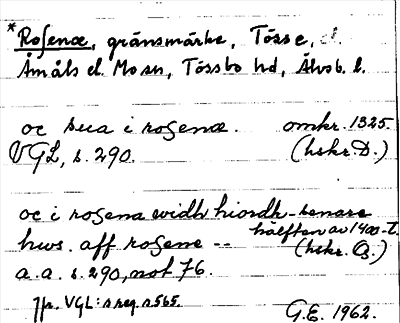 *Rosenæ, gränsmärke, Tösse, el.
Åmåls el. Mosn, Tössbo hd, Älvsb. l.
oc sua i rosenæ. omkr. 1325.
VGL, s. 290. (hskr. D.)
oc i rosena widh hiordh- senare
hws. aff rosene -- hälften av 1400-t.
a.a. s. 290, not 76. (hskr. O.)
Jfr. VGL: s reg. s 565.
G.E. 1962.